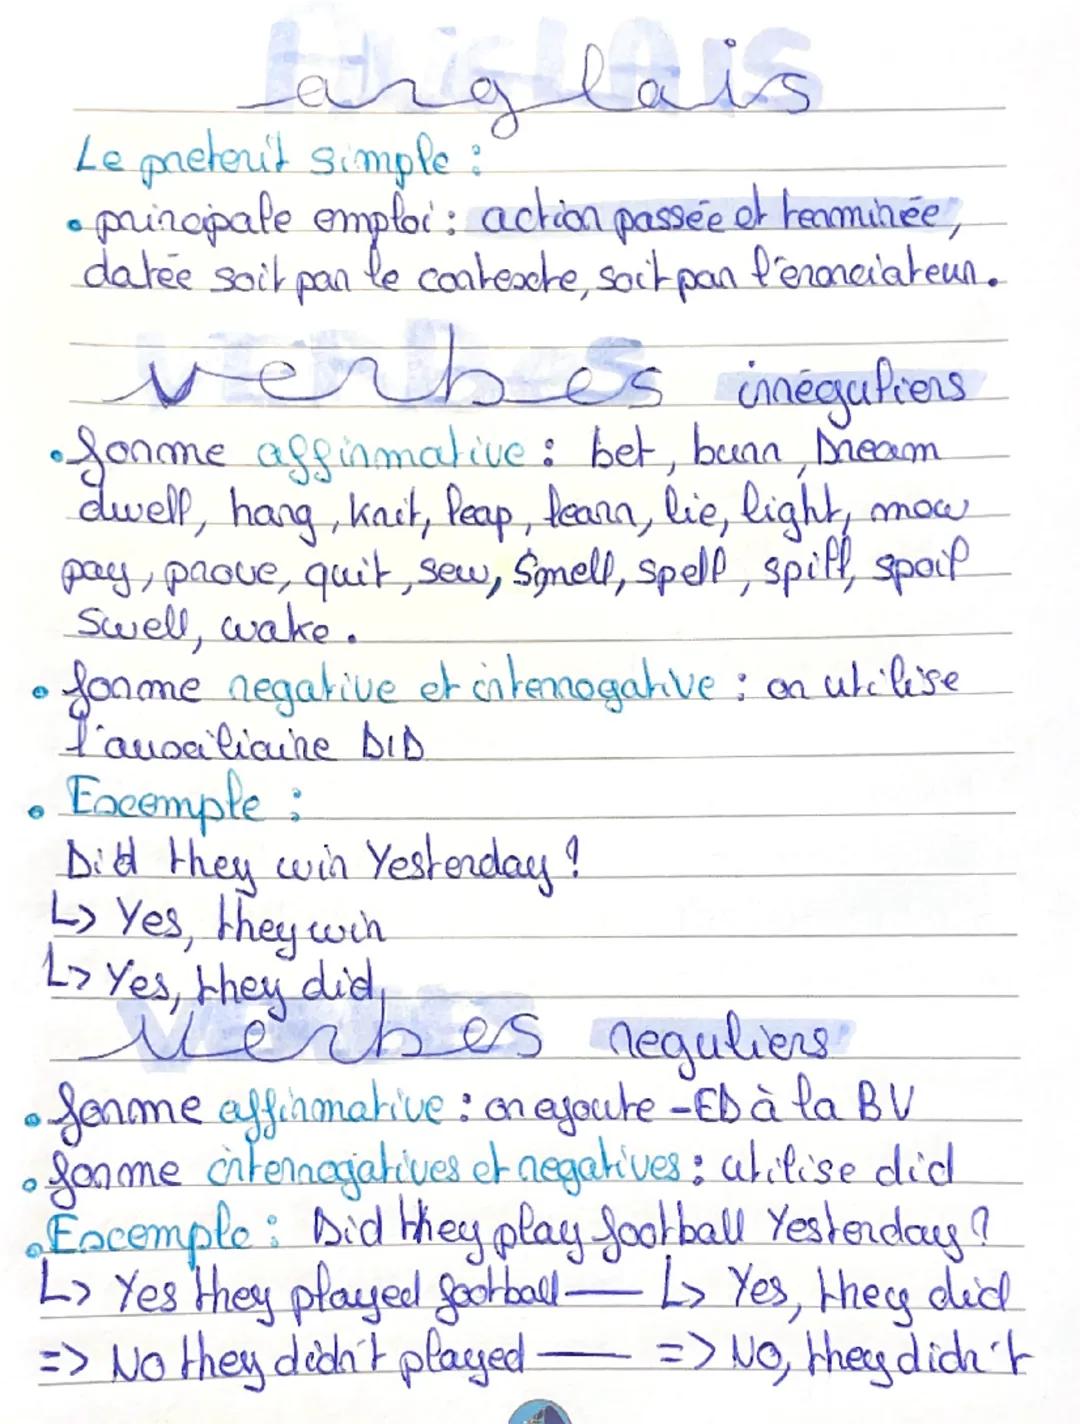 anglais
Le preterit simple :
• principale emploi : action passée et terminée,
datée soit par le contexte, soit par l'énonciateur.
verbes irréguliers
• forme affirmative : bet, burn, Dream
dwell, hang, knit, leap, learn, lie, light, mow
pay, prove, quit, sew, smell, spell, spill, spoil
Swell, wake.
• forme negative et interrogative : on utilise
l'auxiliaire DID
• Exemple :
Did they win Yesterday ?
↳ Yes, they win
↳ Yes, they did,
Verbes reguliers
• forme affirmative : on ajoute -ED à la BV
• forme interrogatives et negatives : utilise did
• Exemple : Did they play football Yesterday ?
↳ Yes they played football — ↳ Yes, they did
=> No they didn't played — => No, they didn't